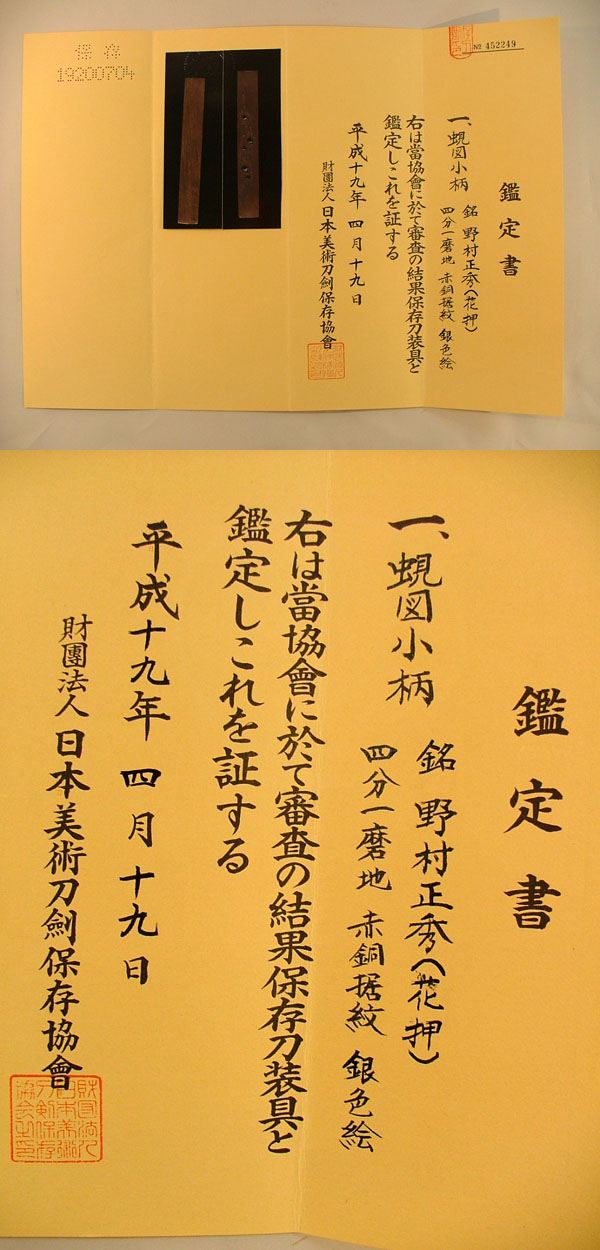 保存
19200704
№ 452249
鑑定書
一、蜆図小柄
銘 野村正秀(花押)
四分一磨地 赤銅据紋 銀色絵
右は當協會に於て審査の結果保存刀装具と
鑑定しこれを証する
平成十九年 四月十九日
財團法人 日本美術刀劍保存協會
鑑定書
一、蜆図小柄
銘 野村正秀(花押)
四分一磨地 赤銅据紋 銀色絵
右は當協會に於て審査の結果保存刀装具と
鑑定しこれを証する
平成十九年 四月十九日
財團法人 日本美術刀劍保存協會